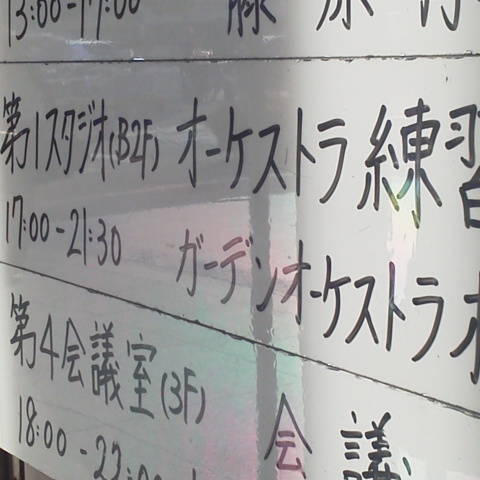 13:00-17:00
第1スタジオ(B2F) オーケストラ練習
17:00-21:30 ガーデンオーケストラ
第4会議室(3F)
18:00-22:00 会議